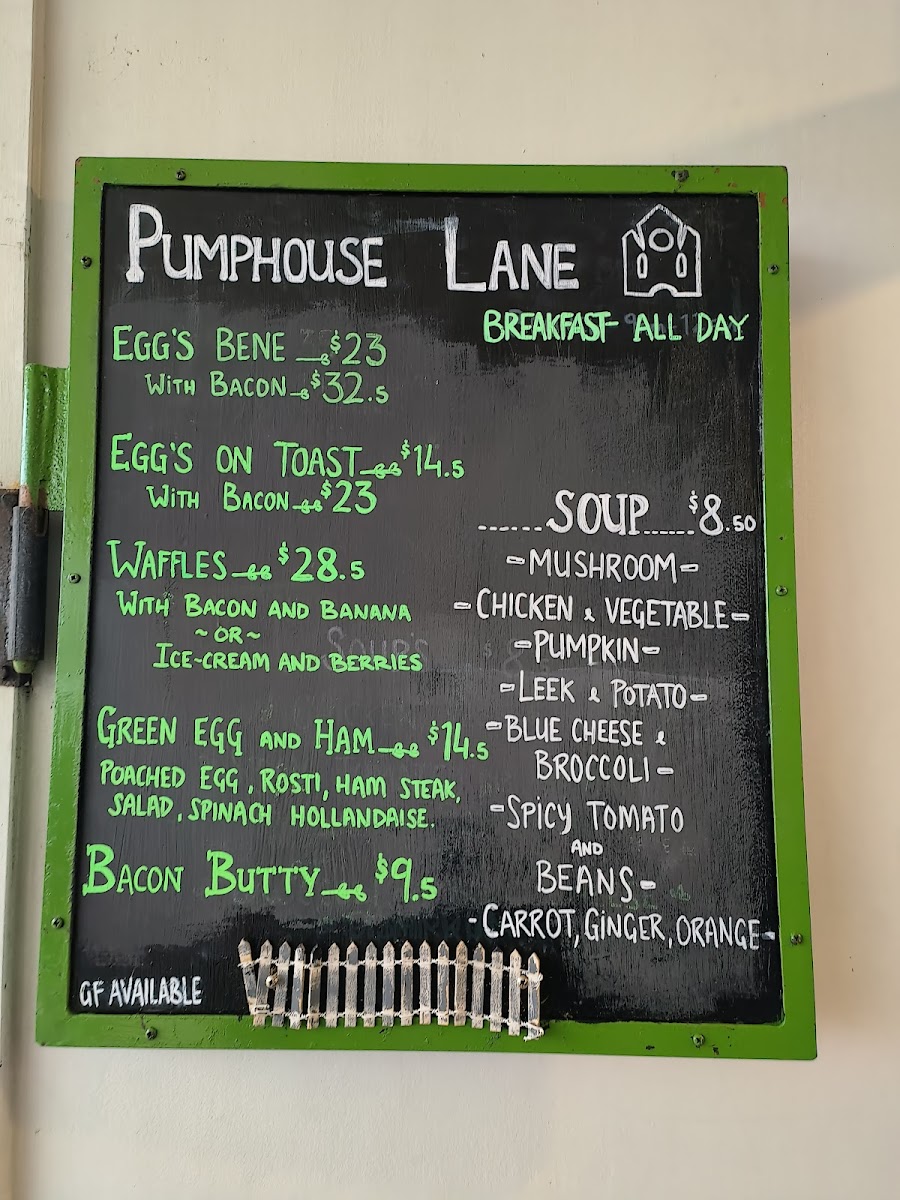 PUMPHOUSE LANE
BREAKFAST ALL DAY
EGG'S BENE $23
WITH BACON $32.5
EGG'S ON TOAST $14.5
WITH BACON $23
WAFFLES $28.5
WITH BACON AND BANANA
~OR~
ICE-CREAM AND BERRIES
GREEN EGG AND HAM $14.5
POACHED EGG, ROSTI, HAM STEAK,
SALAD, SPINACH HOLLANDAISE.
BACON BUTTY $9.5
GF AVAILABLE
......SOUP......$8.50
-MUSHROOM-
-CHICKEN & VEGETABLE-
-PUMPKIN-
-LEEK & POTATO-
-BLUE CHEESE &
BROCCOLI-
-SPICY TOMATO
AND
BEANS-
-CARROT, GINGER, ORANGE-